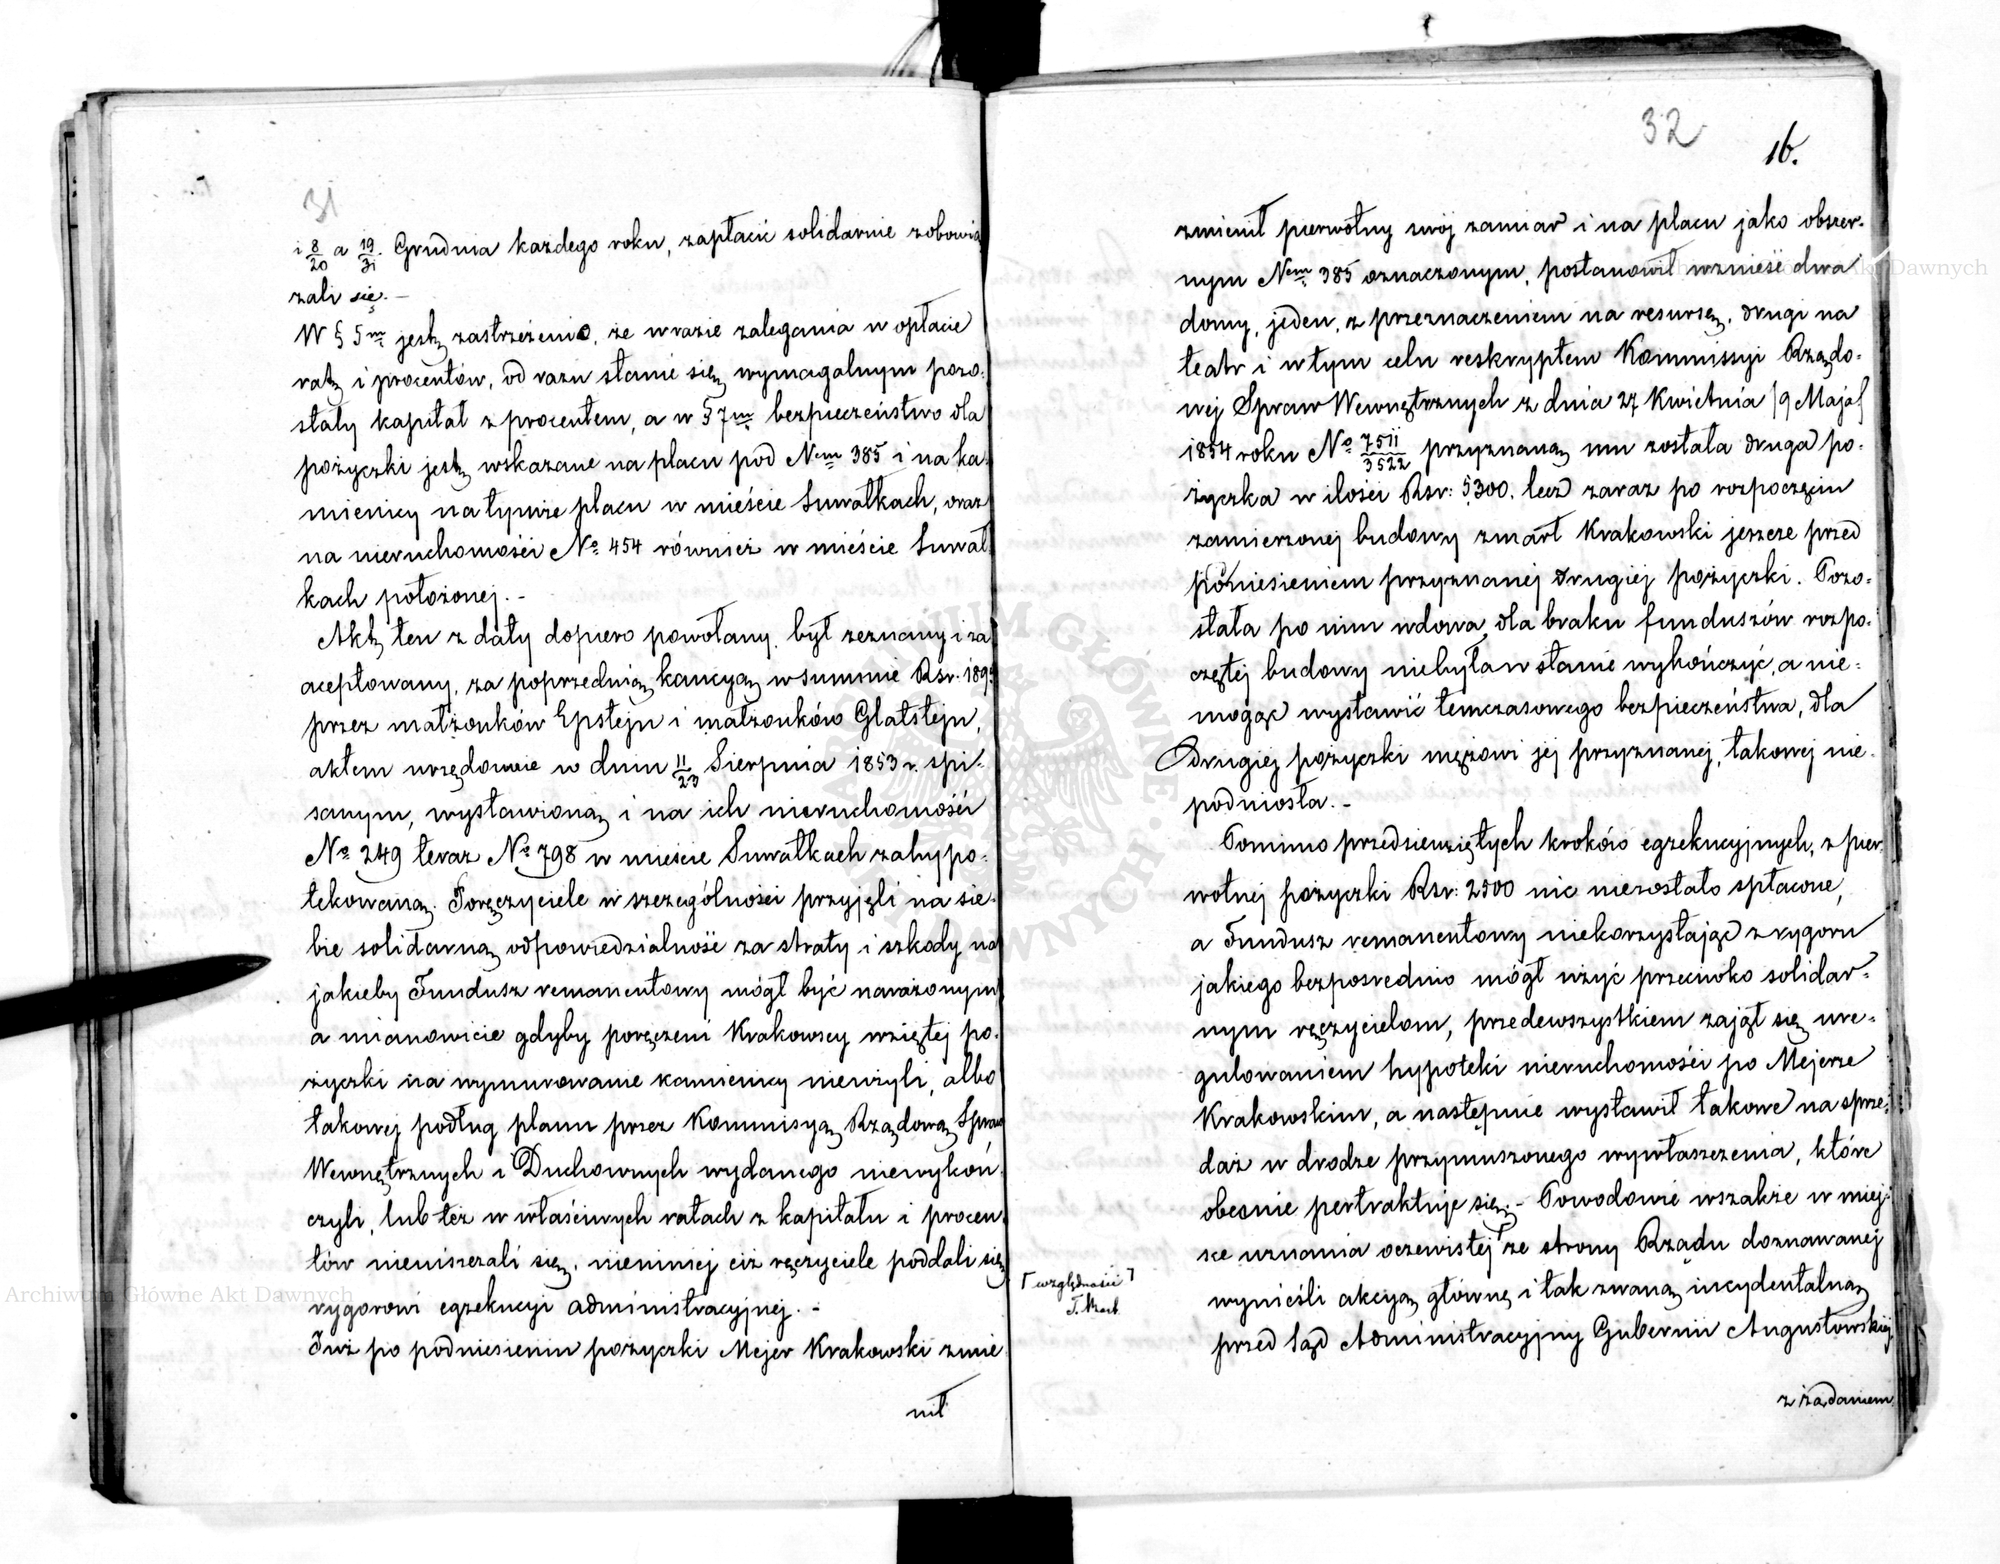 31
i 8/20 a 19/31. Grudnia każdego roku, zapłacić solidarnie zobowią
zali się. –
W § 5m jest zastrzeżenie, że wrazie zalegania w opłacie
rat i procentów, od razu stanie się wymagalnym pozo-
stały kapitał z procentem, a w § 7m bezpieczeństwo dla
pożyczki jest wskazane na placu pod Nem 385 i na ka
mienicy na tymże placu w mieście Suwałkach, oraz
na nieruchomości No 454 również w mieście Suwał
kach położonej. –
Akt ten z daty dopiero powołany, był zeznany i za
aceptowany, za poprzednią kaucyą w summie Rsr. 189
przez małżonków Epstejn i małżonków Glatstejn,
aktem urzędownie w dniu 11/23 Sierpnia 1853 r. spi-
sanym, wystawioną i na ich nieruchomości
No 249 teraz No 798 w mieście Suwałkach zahypo-
tekowaną. Poręczyciele w szczególności przyjęli na sie-
bie solidarną odpowiedzialność za straty i szkody na
jakieby Fundusz remanentowy mógł być narażonym
a mianowicie gdyby poręczeni Krakowscy wziętej po-
życzki na wymurowanie kamienicy nieużyli, albo
takowej podług planu przez Kommisyą Rządową Spraw
Wewnętrznych i Duchownych wydanego niewykoń-
czyli, lub też w właściwych ratach z kapitału i procen-
tów nieuiszczali się, niemniej ciż ręczyciele poddali się
rygorowi egzekucyi administracyjnej. –
Już po podniesieniu pożyczki Mejer Krakowski zmie
nił
32
16.
zmienił pierwotny swój zamiar i na placu jako obszer-
nym Nem 385 oznaczonym, postanowił wznieść dwa
domy, jeden, z przeznaczeniem na resursę, drugi na
teatr i w tym celu reskryptem Kommissyi Rządo-
wej Spraw Wewnętrznych z dnia 27 Kwietnia /9 Maja/
1854 roku No 7511/3522 przyznaną mu została druga po-
życzka w ilości Rsr: 5300. lecz zaraz po rozpoczęciu
zamierzonej budowy zmarł Krakowski jeszcze przed
poniesieniem przyznanej drugiej pożyczki. Pozo-
stała po nim wdowa, dla braku funduszów rozpo-
czętej budowy niebyła w stanie wykończyć, a nie-
mogąc wystawić temczasowego bezpieczeństwa, dla
drugiej pożyczki mężowi jej przyznanej, takowej nie-
podniosła. –
Pomimo przedsięwziętych kroków egzekucyjnych, z pier
wotnej pożyczki Rsr: 2500 nic niezostało spłacone,
a Fundusz remanentowy niekorzystając z rygoru
jakiego bezpośrednio mógł użyć przeciwko solidar-
nym ręczycielom, przedewszystkiem zajął się ure-
gulowaniem hypoteki nieruchomości po Mejerze
Krakowskim, a następnie wystawił takowe na sprze-
daż w drodze przymuszonego wywłaszczenia, które
obecnie pertraktuje się; – Powodowie wszakże w miej-
sce uznania oczewistej Γ ze strony Rządu doznawanej
wynieśli akcyą główną i tak zwaną incydentalną
przed Sąd Administracyjny Gubernii Augustowskiej
z żądaniem
Γ względności ⅂
Archiwum Główne Akt Dawnych
Archiwum Główne Akt Dawnych
ARCHIWUM GŁÓWNE AKT DAWNYCH